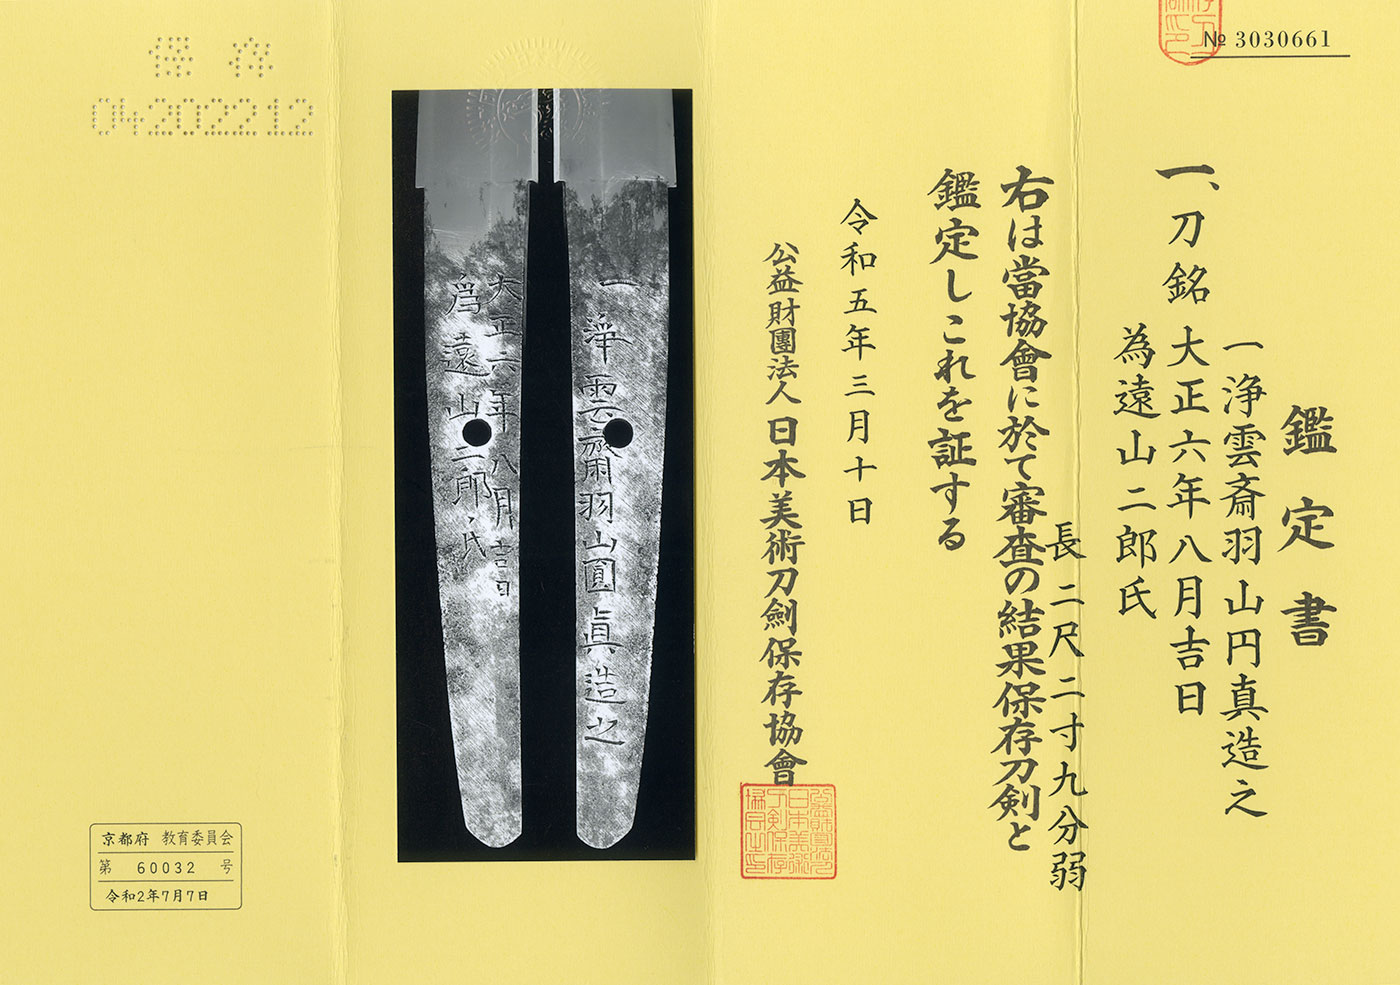 № 3030661
鑑定書
一、刀 銘
一浄雲斎羽山円真造之
大正六年八月吉日
為遠山二郎氏
長二尺二寸九分弱
右は當協會に於て審査の結果保存刀剣と
鑑定しこれを証する
令和五年三月十日
公益財團法人 日本美術刀劍保存協會
一淨雲齋羽山圓眞造之
大正六年八月吉日
爲遠山二郎氏
保存
04202212
京都府 教育委員会
第 60032 号
令和2年7月7日